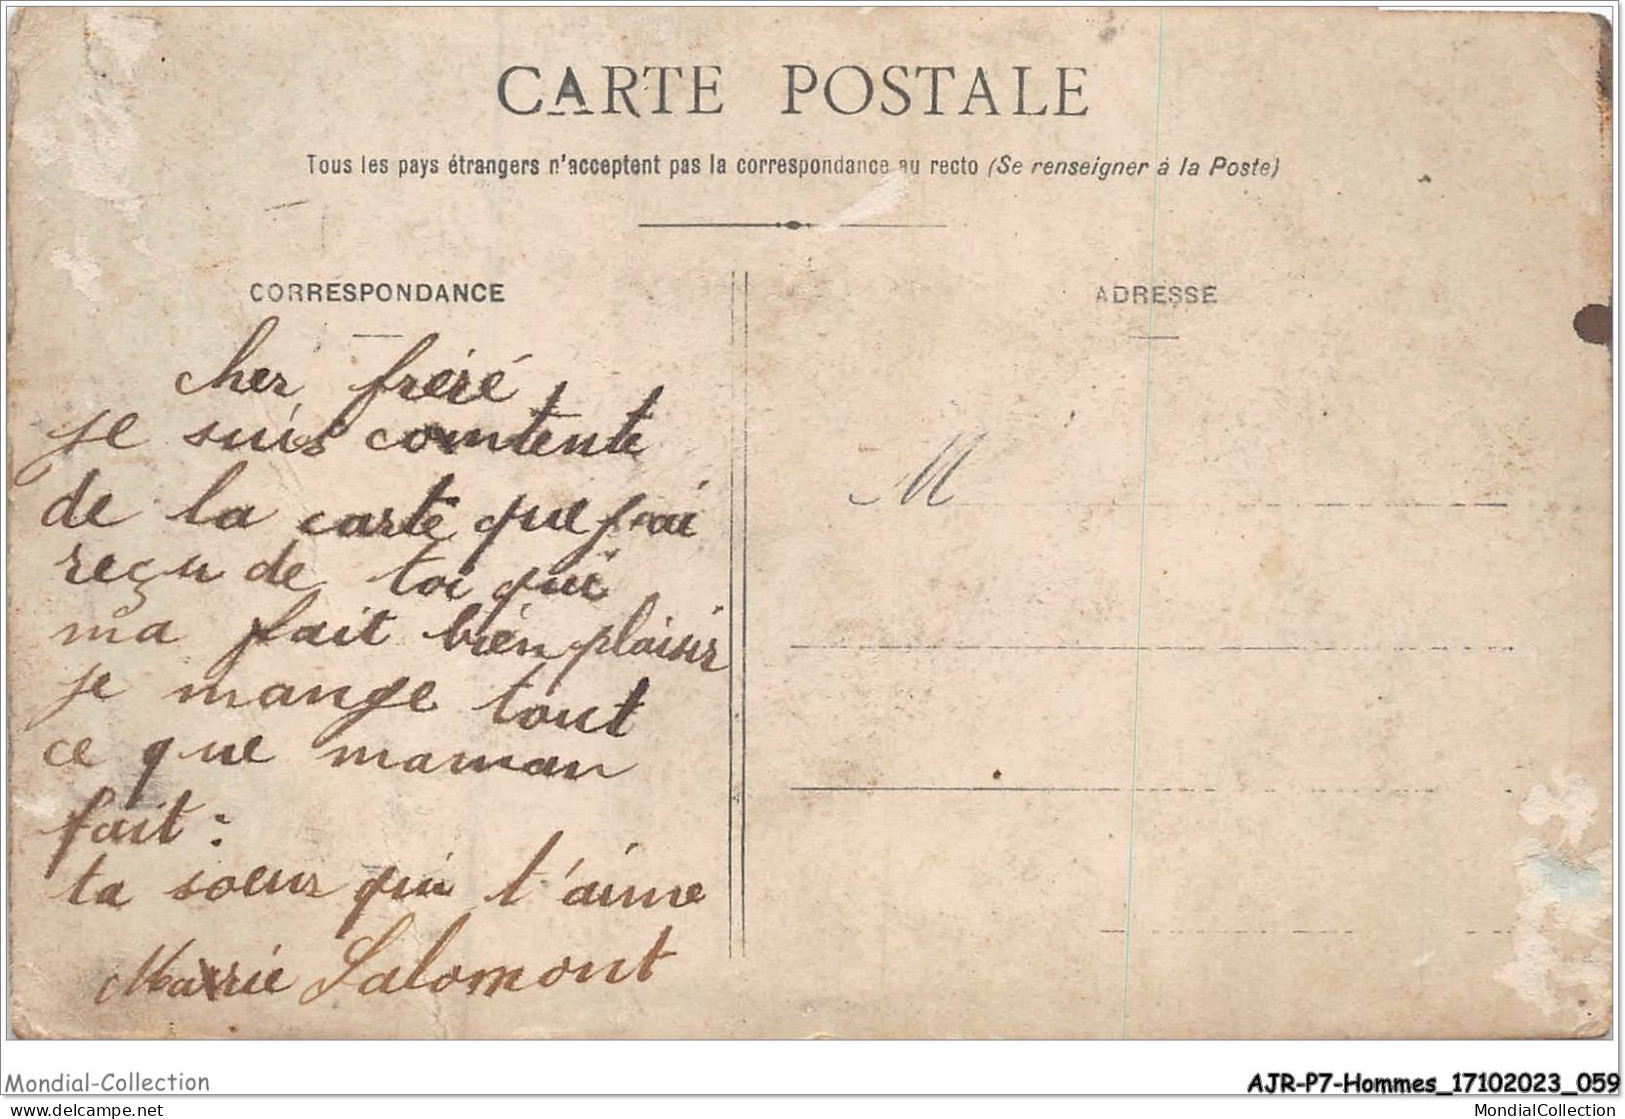 CARTE POSTALE
Tous les pays étrangers n'acceptent pas la correspondance au recto (Se renseigner à la Poste)
CORRESPONDANCE
ADRESSE
cher fréré
je suis contente
de la carte que j'ai
reçu de toi qui
ma fait bien plaisir
je mange tout
ce que maman
fait :
ta soeur qui t'aime
Marie Salomont
M
Mondial-Collection
AJR-P7-Hommes_17102023_059
www.delcampe.net
MondialCollection